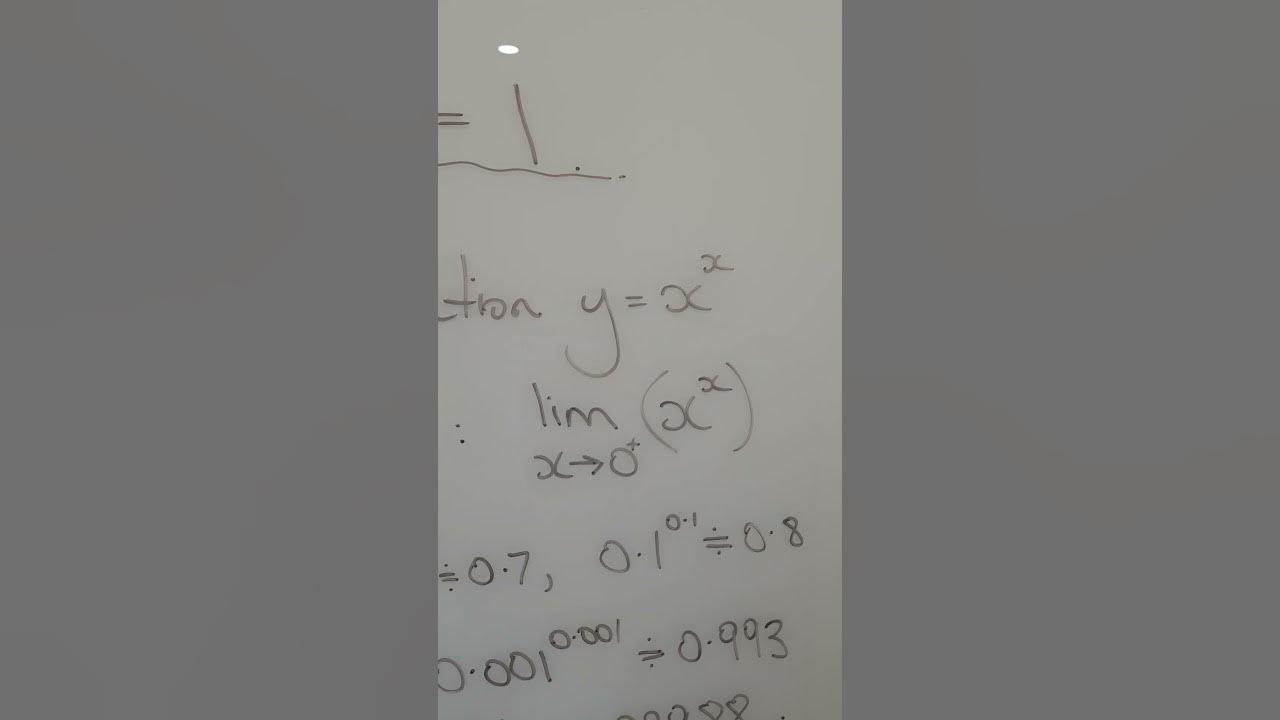 = 1
tion y = x^x
: lim (x^x)
x→0⁺
≑ 0.7, 0.1^0.1 ≑ 0.8
0.001^0.001 ≑ 0.993